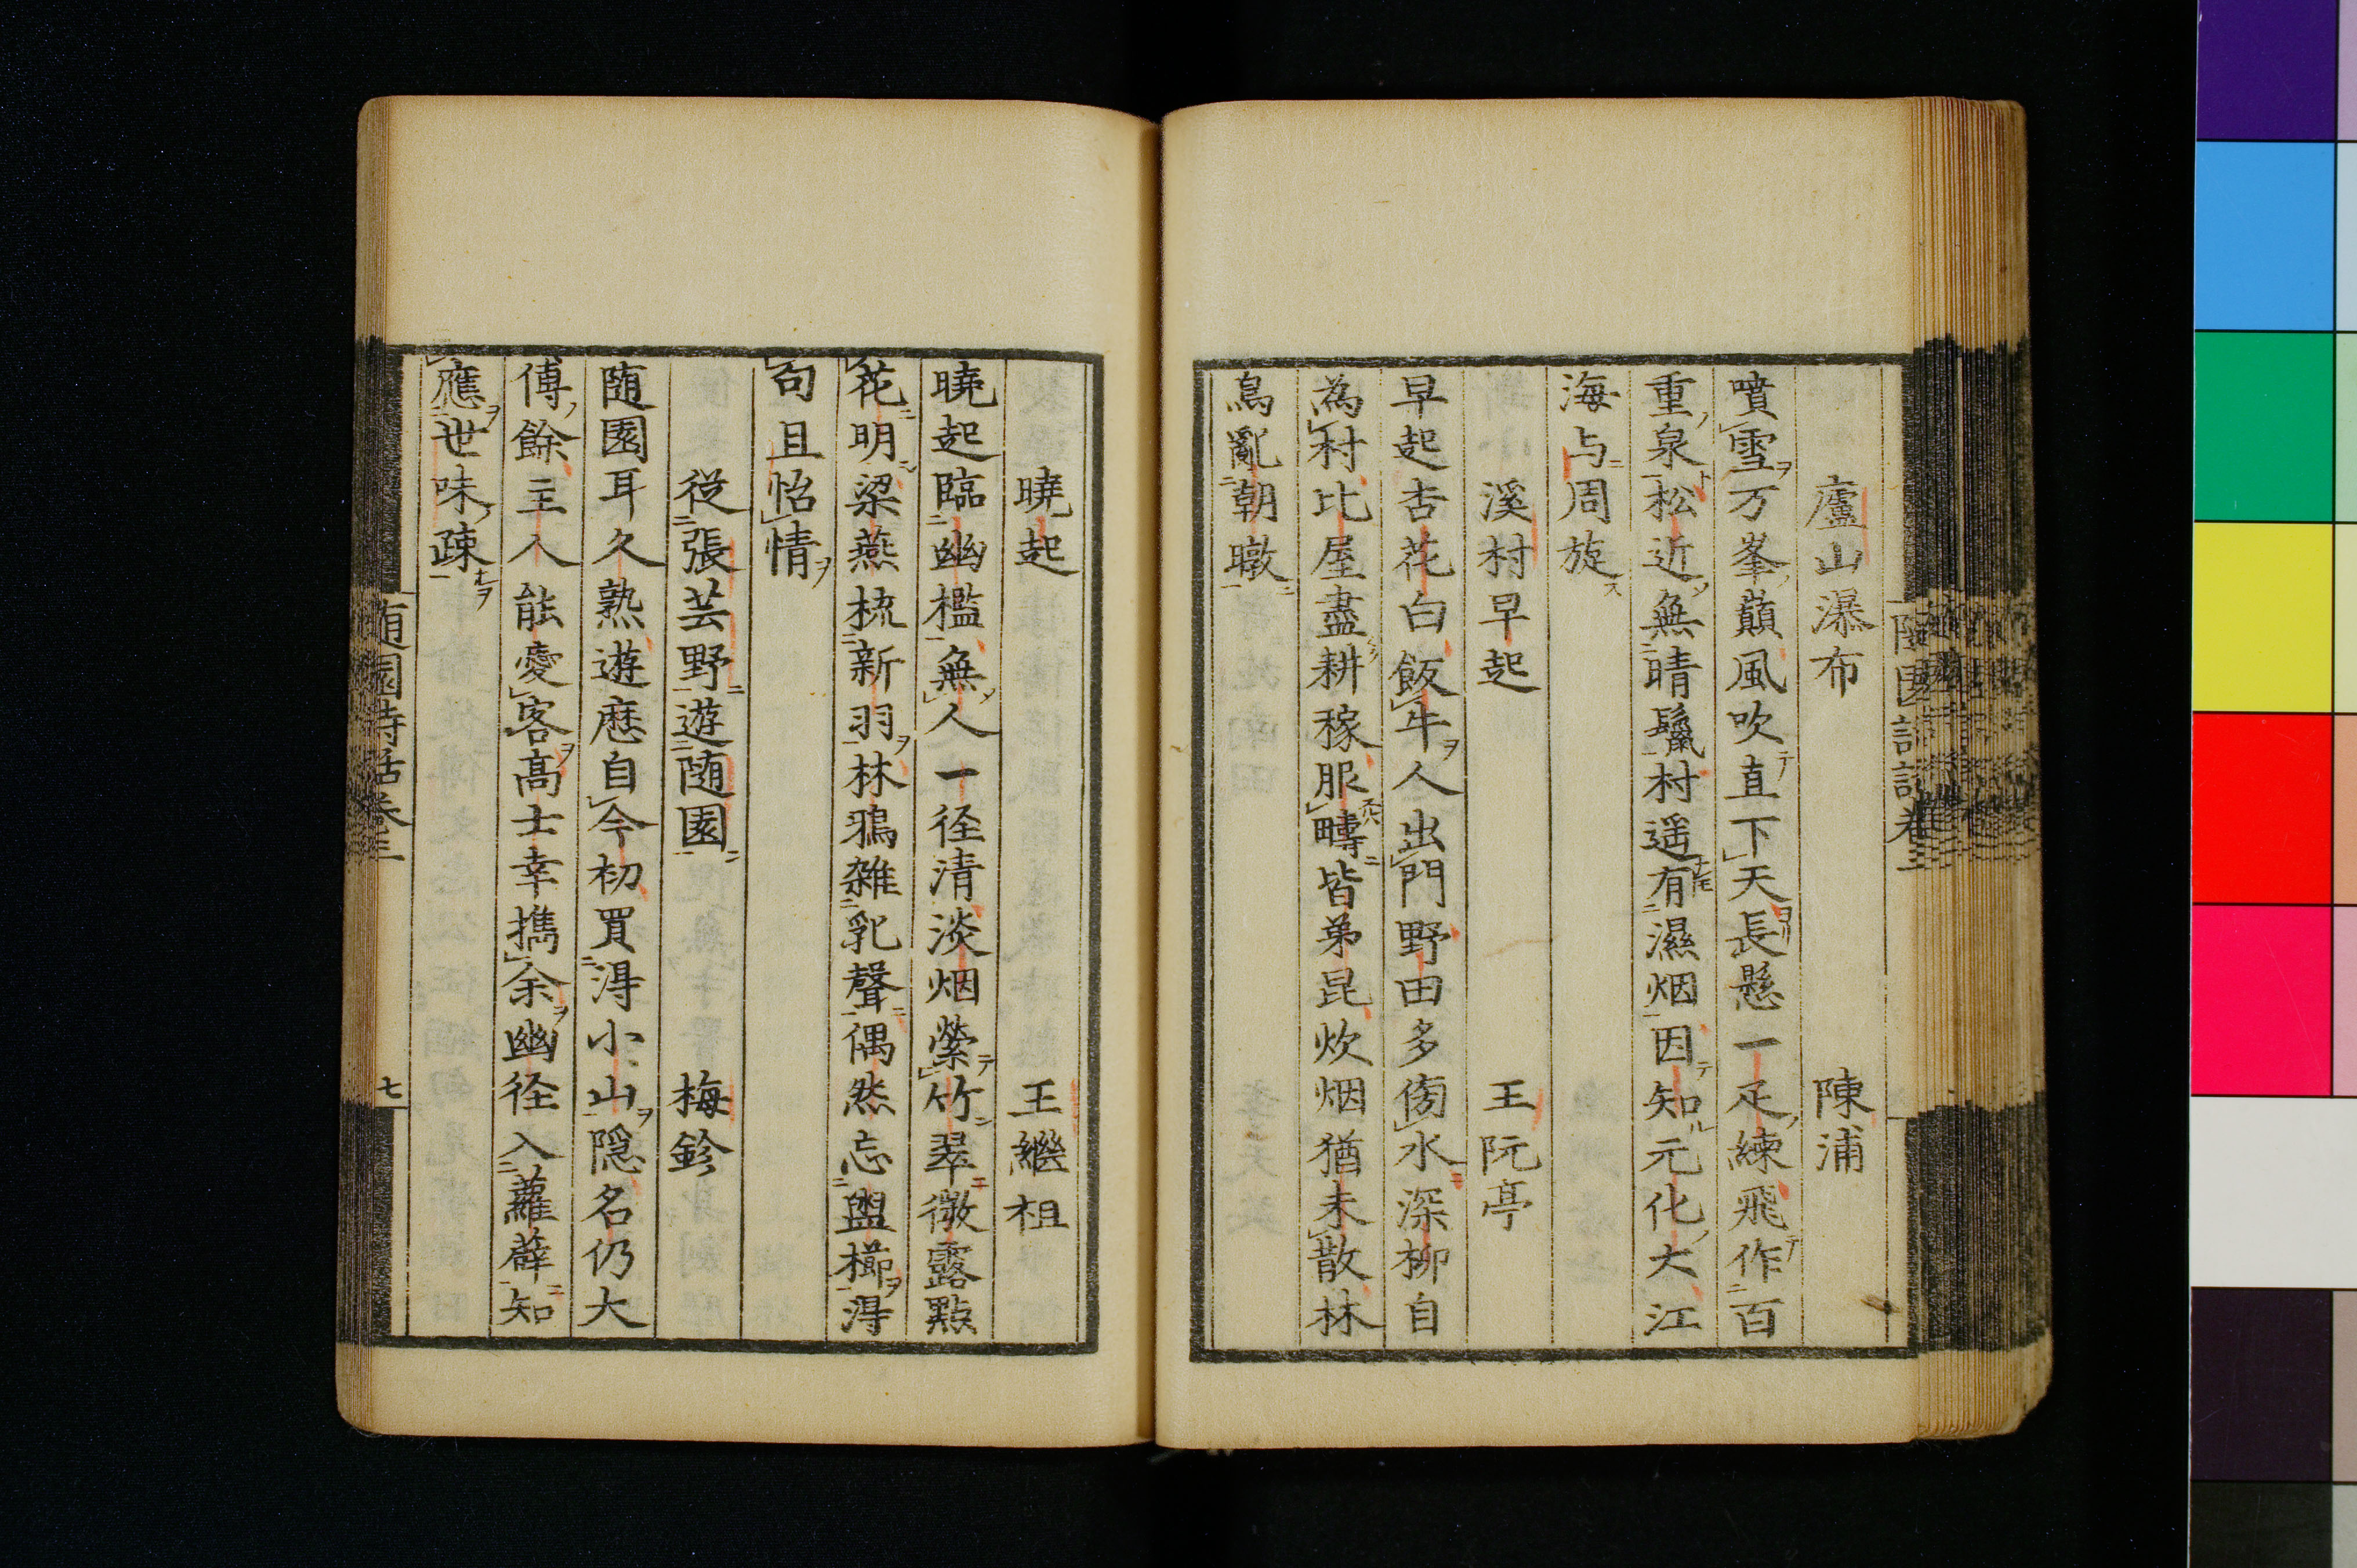 廬山瀑布　陳浦
噴雪万峯巔風吹直下天長懸一疋練飛作百
重泉松近無晴鬣村遥有濕烟因知元化大江
海与周旋
溪村早起　王阮亭
早起杏花白飯牛人出門野田多傍水深柳自
為村比屋盡耕稼服疇皆弟昆炊烟猶未散林
鳥亂朝暾
曉起　王繼祖
曉起臨幽檻無人一径清淡烟縈竹翠微露點
花明梁燕梳新羽林鴉雜乳聲偶然忘盥櫛淂
句且怡情
從張芸野遊随園　梅鉁
随園耳久熟遊歴自今初買淂小山隠名仍大
傳餘主人能愛客高士幸攜余幽径入蘿薜知
應世味疎
随園詩話卷三
七